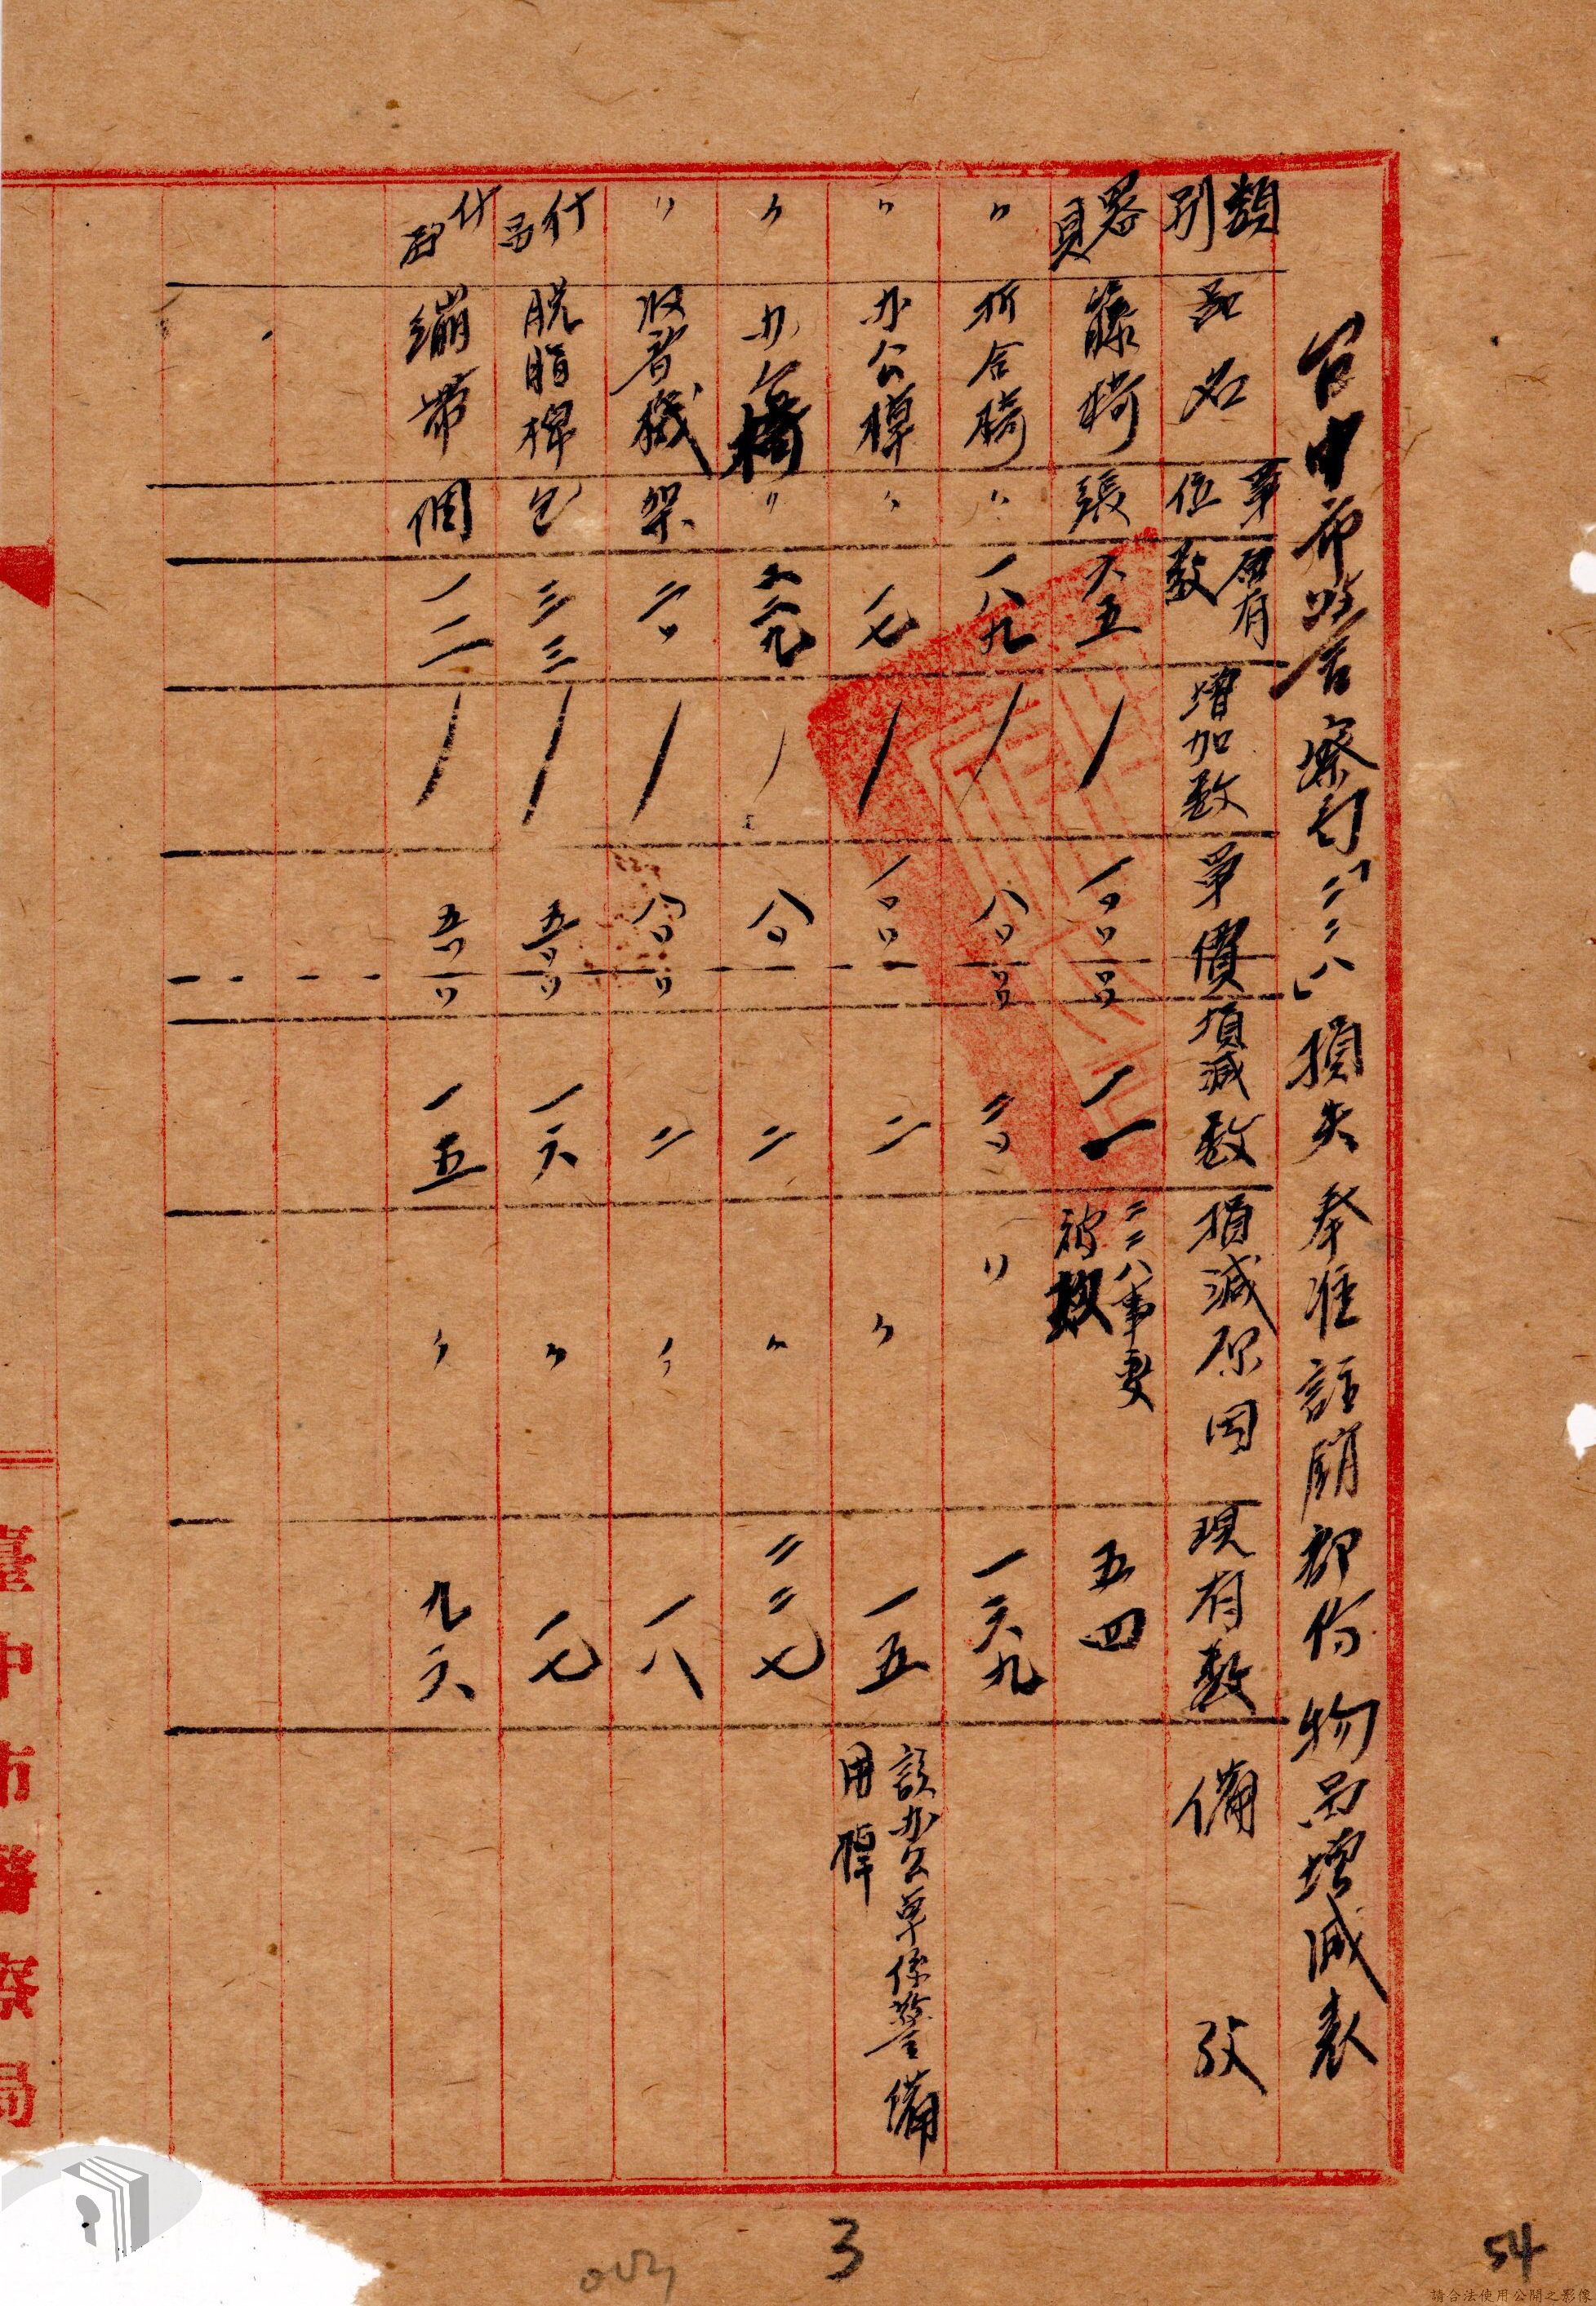 台中市警察局「二二八」損失奉准註銷部份物品增減表
類別 品名 單位 原有數 增加數 單價 損減數 損減原因 現有數 備攷
器具 藤椅 張 六五 / 一〇〇 〇〇 一一 二二八事變被 五四
〃 折合椅 〃 一八九 / 八〇 〇〇 二〇 〃 一六九
〃 办公棹 〃 一七 / 一〇〇 二 〃 一五 該办公桌係警備用棹
〃 办公椅 〃 二二九 / 八〇 二 〃 二二七
〃 收音機 架 二〇 / 〃 二 〃 一八
什品 脱脂棉 包 三三 / 五〇〇 〇〇 一六 〃 一七
什品 繃帶 個 一一一 / 五〇 〇 一五 〃 九六
臺中市警察局
3
54
請合法使用公開之影像